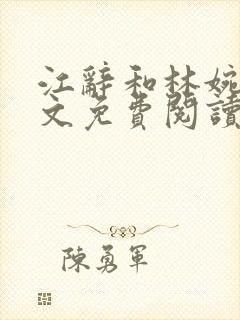 江辭和林婉
文免費閱讀
陳勇軍